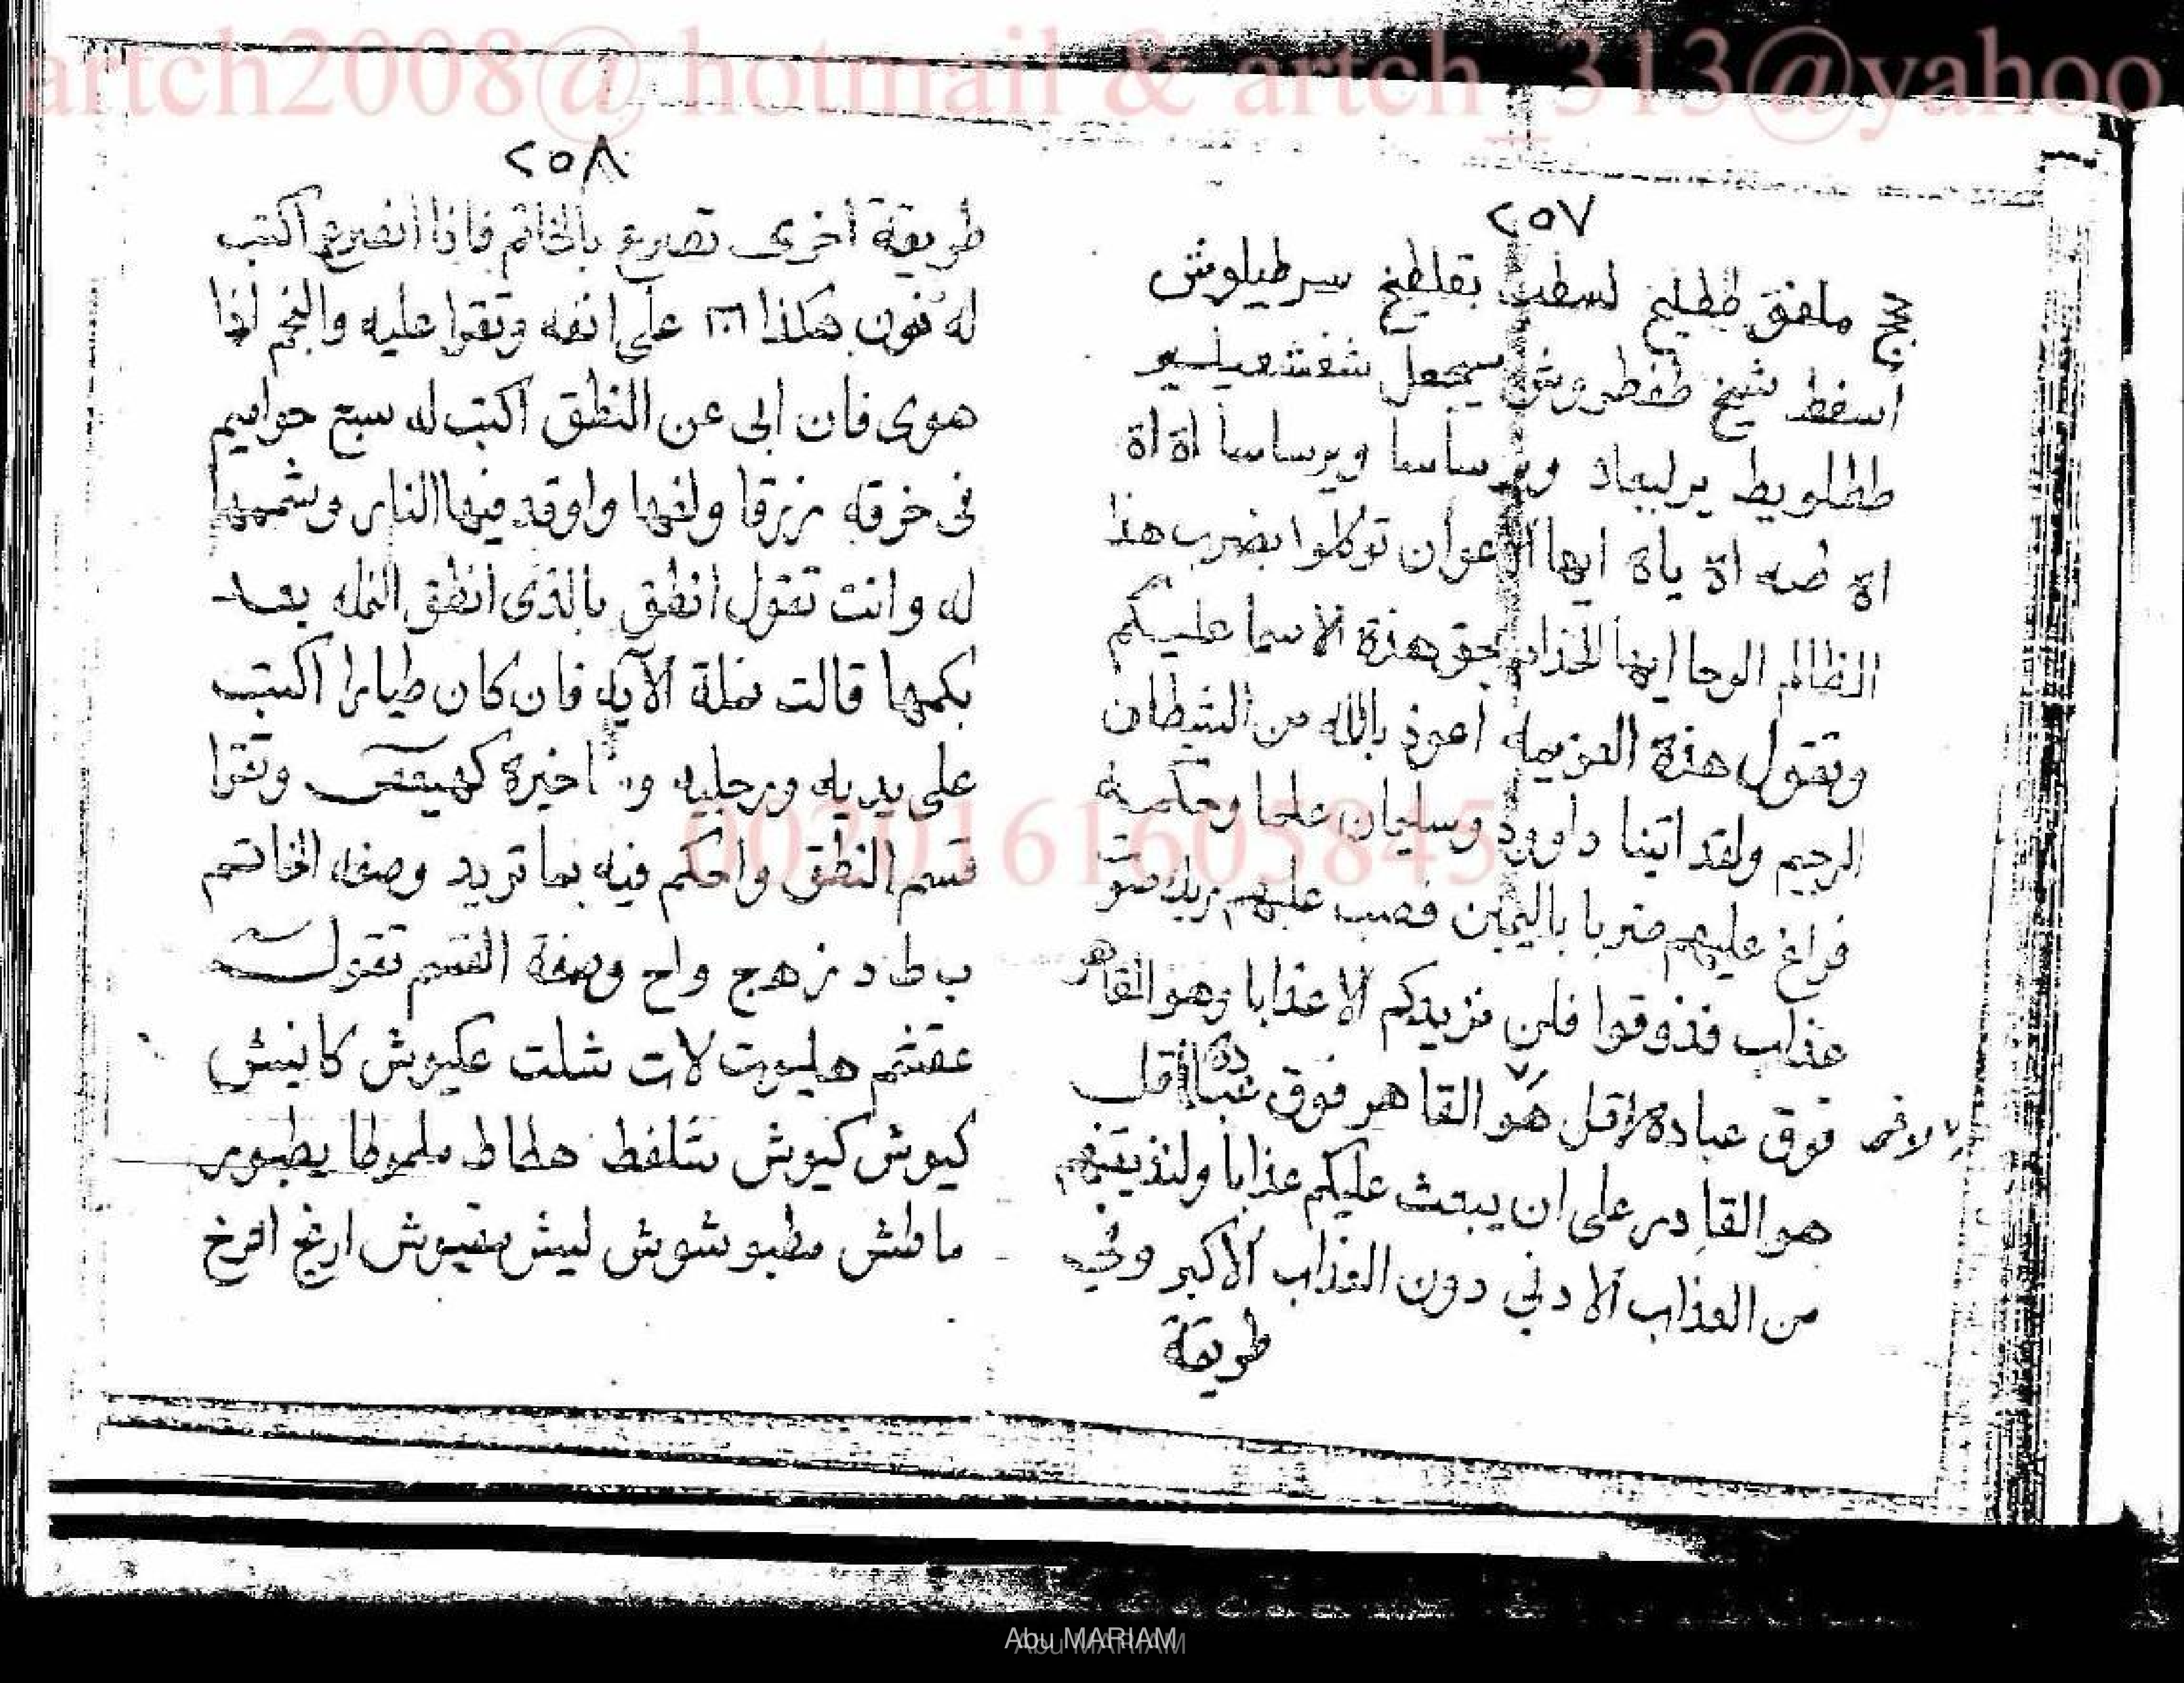 artch2008@ hotmail & artch_313@yahoo
٢٥٧
ملفق ططليخ لسطيـ بقلطيخ سرطيلوش
اسفظ شيخ طفطروش
ططلويط برلبعاد ويرساسا ويرساسا اة اة
اة طه اة ياة ايها الاعوان توكلوا بضرب هذا
الظالم الوحا ايها الخدام بحق هذة الاسما عليكم
وتقول هذة العزيمه أعوذ بالله من الشطان
الرجيم ولقد اتينا داوود وسليمان علما وحكمة
فراغ عليهم ضربا باليمين فصب عليهم ربك صوت
عذاب فذوقوا فلن نزيدكم الا عذابا وهو القاهر
فوق عبادة قل هو القاهر فوق عبادة قل
هو القادر على ان يبعث عليكم عذابا ولنذيقنهم
من العذاب الادني دون العذاب الأكبر وفي
طريقة
٢٥٨
طريقة اخرى تصرع بالخاتم فاذا انصرع اكتب
له نون هكذا على انفه وتقرا عليه والنجم اذا
هوى فان ابى عن النطق اكتب له سبع حواميم
فى خرقه زرقا ولفها واوقد فيها النار وشممها
له وانت تقول انطق بالذى انطق النمله بعد
بكمها قالت نملة الآيه فان كان طيارا اكتب
على يديه ورجليه و اخيرة كهيعص وتقرا
قسم النطق واحكم فيه بما تريد وصفه الخاتم
ب ط د ز هج واح وصفة القسم تقول
عقشم هليوت لات شلت عكيوش كانيش
كيوش كيوش شلفط هطاط ملموطا يطبور
ماطش مطبو شوش ليش مقيوش ارنخ افرخ
0020161605845
Abu MARIAM